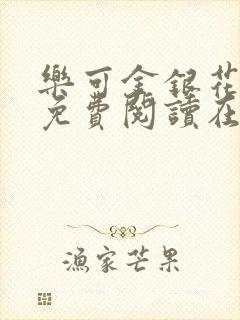 樂可金銀花
免費閱讀在
漁家芒果